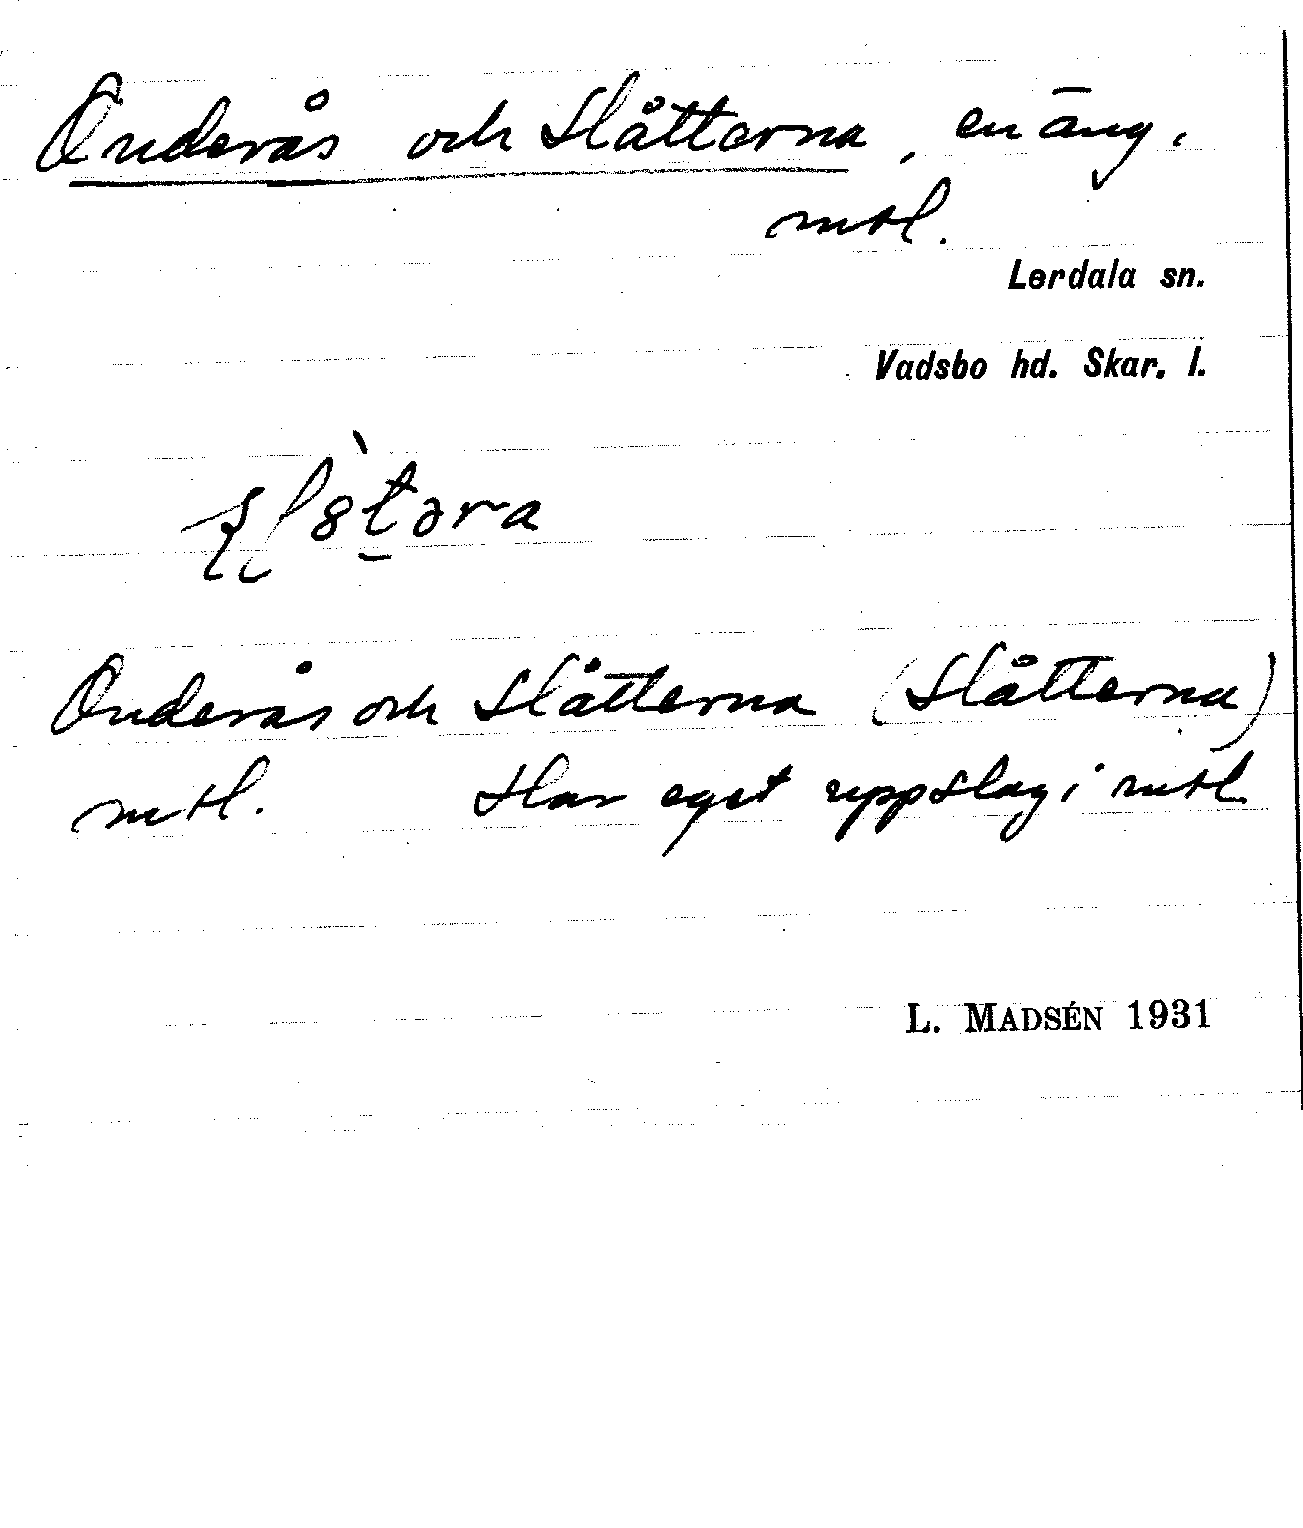 Onderås och Slåtterna, en äng.
mtl.
Lerdala sn.
Vadsbo hd. Skar. l.
Onderås och Slåtterna (Slåtterna)
mtl. Har eget uppslag i mtl.
L. MADSÉN 1931